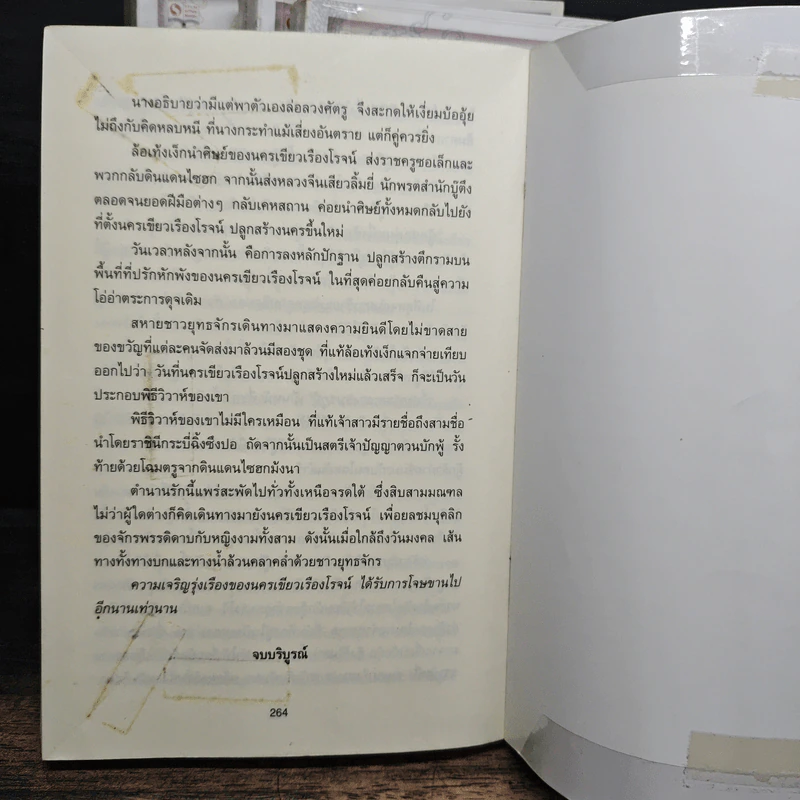 นางอธิบายว่ามีแต่พาตัวเองล่อลวงศัตรู จึงสะกดให้เงี่ยมบ้ออุ้ย
ไม่ถึงกับคิดหลบหนี ที่นางกระทำแม้เสี่ยงอันตราย แต่ก็คู่ควรยิ่ง
ล้อเท้งเง็กนำศิษย์ของนครเขียวเรืองโรจน์ ส่งราชครูซอเล็กและ
พวกกลับดินแดนไซฮก จากนั้นส่งหลวงจีนเสียวลิ้มยี่ นักพรตสำนักบู๊ตึง
ตลอดจนยอดฝีมือต่างๆ กลับเคหสถาน ค่อยนำศิษย์ทั้งหมดกลับไปยัง
ที่ตั้งนครเขียวเรืองโรจน์ ปลูกสร้างนครขึ้นใหม่
วันเวลาหลังจากนั้น คือการลงหลักปักฐาน ปลูกสร้างตึกรามบน
พื้นที่ที่ปรักหักพังของนครเขียวเรืองโรจน์ ในที่สุดค่อยกลับคืนสู่ความ
โอ่อ่าตระการดุจเดิม
สหายชาวยุทธจักรเดินทางมาแสดงความยินดีโดยไม่ขาดสาย
ของขวัญที่แต่ละคนจัดส่งมาล้วนมีสองชุด ที่แท้ล้อเท้งเง็กแจกจ่ายเทียบ
ออกไปว่า วันที่นครเขียวเรืองโรจน์ปลูกสร้างใหม่แล้วเสร็จ ก็จะเป็นวัน
ประกอบพิธีวิวาห์ของเขา
พิธีวิวาห์ของเขาไม่มีใครเหมือน ที่แท้เจ้าสาวมีรายชื่อถึงสามชื่อ
นำโดยราชินีกระบี่ฉิ้งซึงปอ ถัดจากนั้นเป็นสตรีเจ้าปัญญาตวนบักพู้ รั้ง
ท้ายด้วยโฉมตรูจากดินแดนไซฮกมังนา
ตำนานรักนี้แพร่สะพัดไปทั่วทั้งเหนือจรดใต้ ซึ่งสิบสามมณฑล
ไม่ว่าผู้ใดต่างก็คิดเดินทางมายังนครเขียวเรืองโรจน์ เพื่อยลชมบุคลิก
ของจักรพรรดิดาบกับหญิงงามทั้งสาม ดังนั้นเมื่อใกล้ถึงวันมงคล เส้น
ทางทั้งทางบกและทางน้ำล้วนคลาคล่ำด้วยชาวยุทธจักร
ความเจริญรุ่งเรืองของนครเขียวเรืองโรจน์ ได้รับการโจษขานไป
อีกนานเท่านาน
จบบริบูรณ์
264